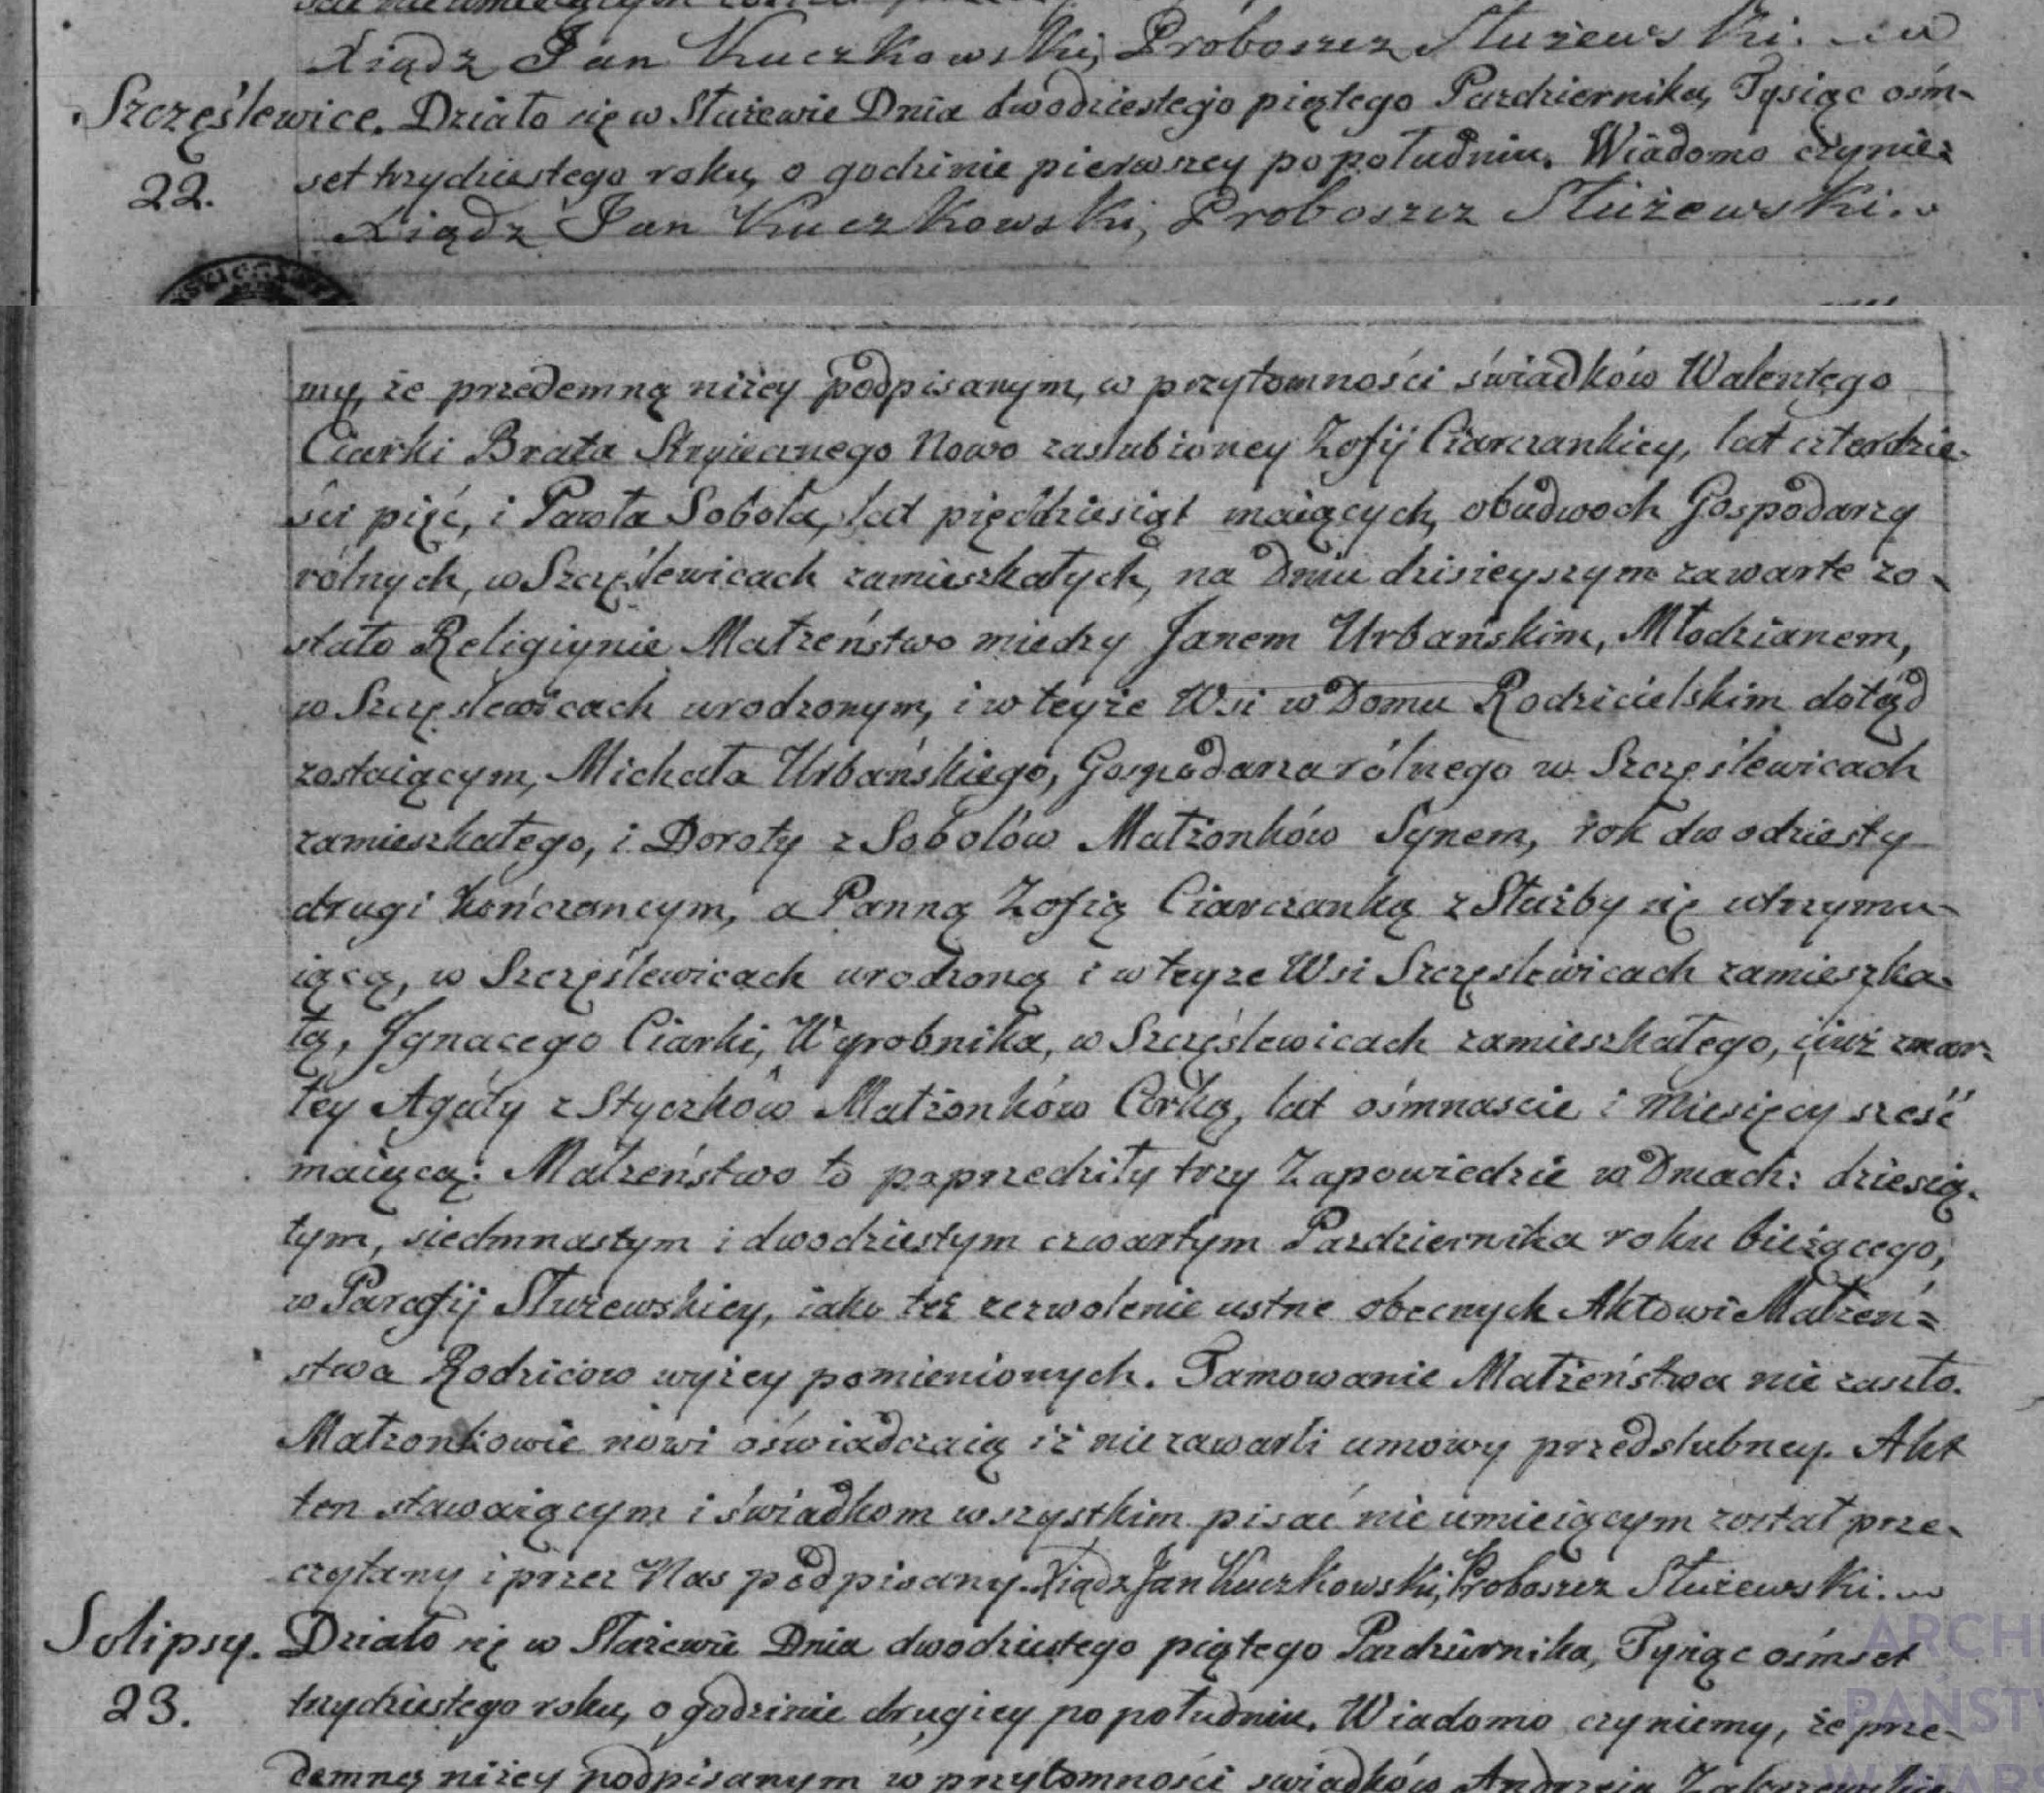 Xiądz Jan Kuczkowski, Proboszcz Służewski.
Szczęślewice. Działo się w Służewie Dnia dwodziestego piątego Pazdziernika, Tysiąc ośm-
22. set trzydziestego roku, o godzinie pierwszey popołudniu. Wiadomo czynie-
Xiądz Jan Kuczkowski, Proboszcz Służewski.
my, że przedemną niżey podpisanym, w przytomności świadków Walentego
Ciarki Brata Stryiecznego Nowo zaslubioney Zofij Ciarczankiey, lat czterdzie-
ści pięć, i Pawła Sobola, lat pięćdziesiąt maiących, obudwoch Gospodarzy
rólnych, w Szczęślewicach zamieszkałych, na Dniu dzisieyszym zawarte zo-
stało Religiynie Małżeństwo miedzy Janem Urbańskim, Młodzianem,
w Szczęslewicach urodzonym, i w teyże Wsi w Domu Rodzicielskim dotąd
zostaiącym, Michała Urbańskiego, Gospodarza rólnego w Szczęślewicach
zamieszkałego, i Doroty z Sobolów Małżonków Synem, rok dwodziesty
drugi kończancym, a Panną Zofią Ciarczanką z Służby się utrzymu-
iącą, w Szczęślewicach urodzoną i w teyze Wsi Szczęslewicach zamieszka-
łą, Jgnacego Ciarki, Wyrobnika, w Szczęślewicach zamieszkałego, i iuż zmar-
łey Agaty z Styczków Małżonków Corką, lat ośmnascie i Miesięcy sześć
maiącą: Małżeństwo to poprzedziły trzy Zapowiedzie w Dniach: dziesią-
tym, siedmnastym i dwodziestym czwartym Pazdziernika roku bieżącego,
w Parafij Służewskiey, iako też zezwolenie ustne obecnych Aktowi Małżeń=
stwa Rodziców wyżey pomienionych. Tamowanie Małżeństwa nie zaszło.
Małżonkowie nowi oświadczaią iż nie zawarli umowy przedslubney. Akt
ten stawaiącym i świadkom wszystkim pisać nie umieiącym został prze-
czytany i przez Nas podpisany. Xiądz Jan Kuczkowski, Proboszcz Służewski.
Solipsy. Działo się w Służewie Dnia dwodziestego piątego Pazdziernika, Tysiąc ośmset
23. trzydziestego roku, o godzinie drugiey po południu. Wiadomo czyniemy, że prze-
demną niżey podpisanym w przytomności swiadków Andrzeia
ARCHI
PAŃSTW
W WARS